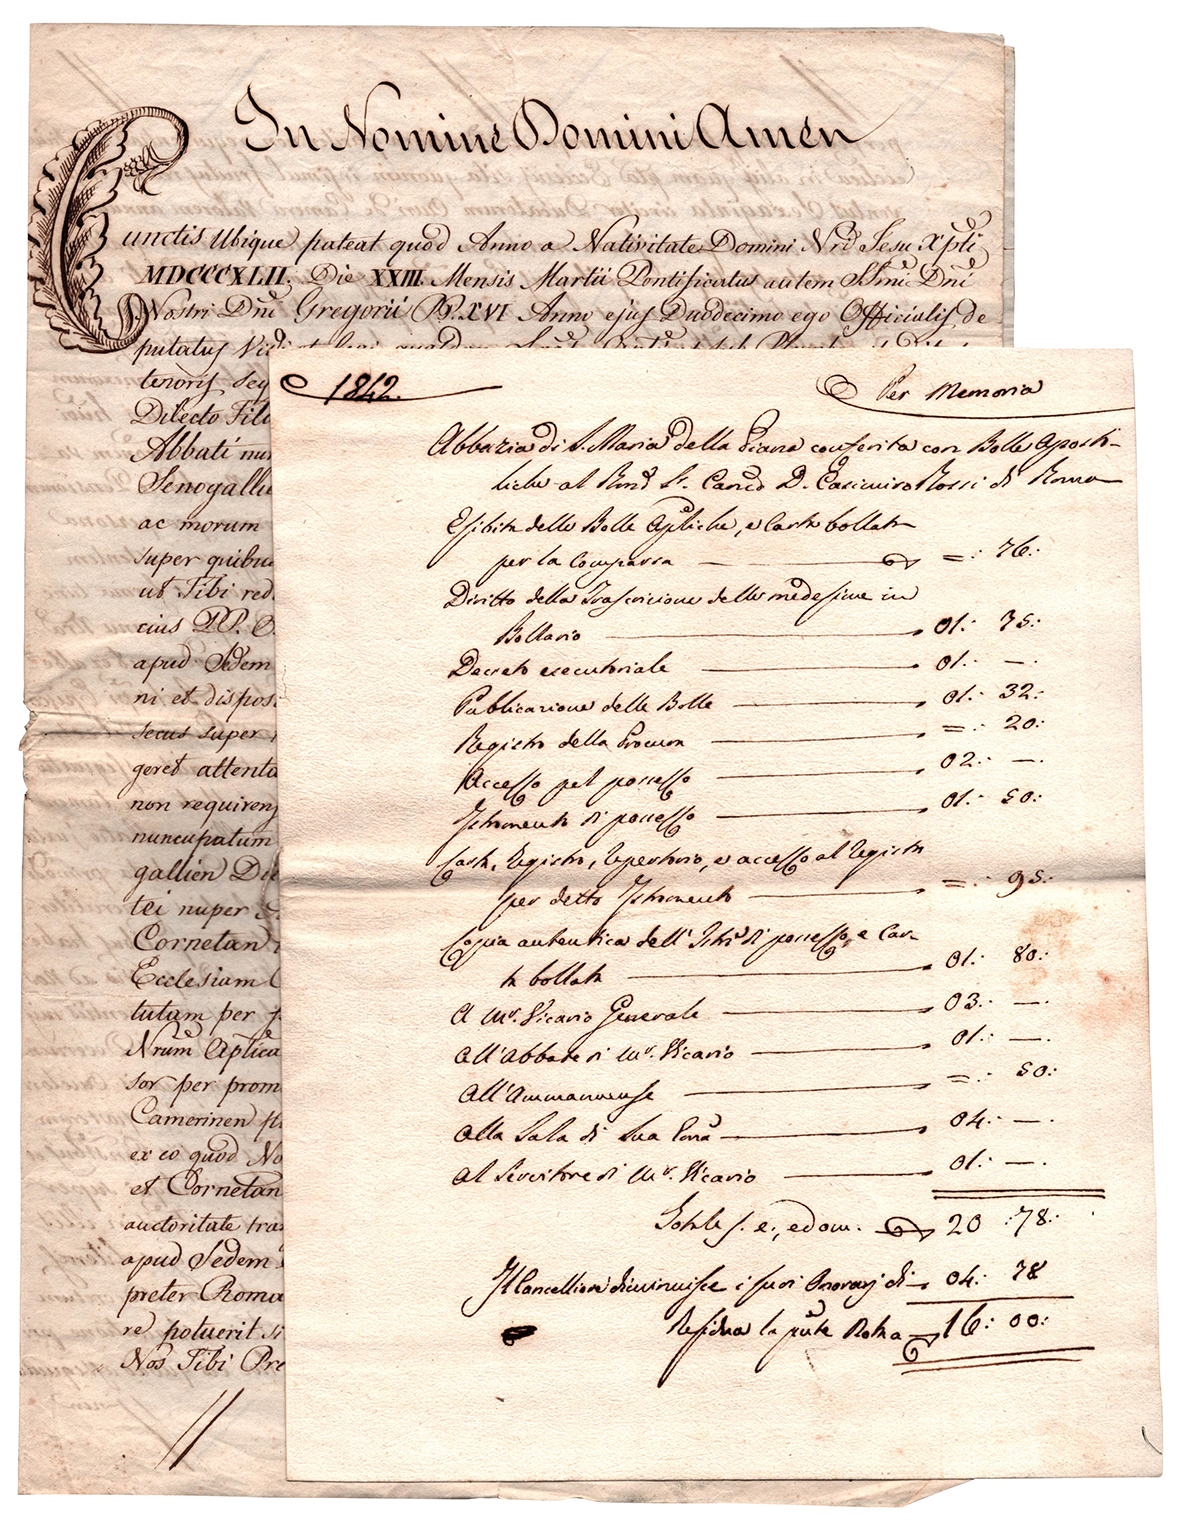 In Nomine Domini Amen
Cunctis Ubique pateat quod Anno a Nativitate Domini Nrĩ Jesu Xpti
MDCCCXLII. Die XXIII. Mensis Martii Pontificatus autem Ssmi Dni
Nostri Dni Gregorii PP. XVI Anno ejus Duodecimo ego Officialis de
putatus Vidi et legi
terioris seq
Dilecto Fili
Abbati nun
Senogallie
ac morum
super quibus
ut Tibi red
cius PP. O
apud Sedem
ni et dispos
secus super
geret attenta
non requirens
nuncupatum
gallien Di
tei nuper
Cornetan
Ecclesiam
tutam per
Nrum Aplica
sor per prom
Camerinen
ex eo quod No
et Cornetan
auctoritate tra
apud Sedem
preter Roma
re potuerit si
Nos Tibi Pre
1842.
Per Memoria
Abbazia di S. Maria della Piana conferita con Bolle Aposto-
liche al Rmo Sr. Canco D. Casimiro Rossi di Roma
Esibita delle Bolle Aptliche, e Carta bollata
per la Comparsa = : 76 :
Diritto della Trascrizione delle medesime in
Bollario 01 : 75 :
Decreto esecutoriale 01 : — .
Publicazione delle Bolle 01 : 32 :
Registro della Procura = : 20 :
Accesso pel possesso 02 : — .
Istromento di possesso 01 : 50 :
Carta, Registro, Repertorio, e accesso al Registro
per detto Istromento = : 95 :
Copia autentica dell' Istro di possesso, e Car-
ta bollata 01 : 80 :
A Mr. Vicario Generale 03 : — .
All' Abbate di Mr. Vicario 01 : — .
All' Ammanuense = : 50 :
Alla Sala di Sua Emã 04 : — .
Al Servitore di Mr. Vicario 01 : — .
Totale s. e., ed om. 20 : 78 :
Il Cancelliere diminuisce i suoi Onorarj di 04 : 78
Residua la pnte Nota 16 : 00 :